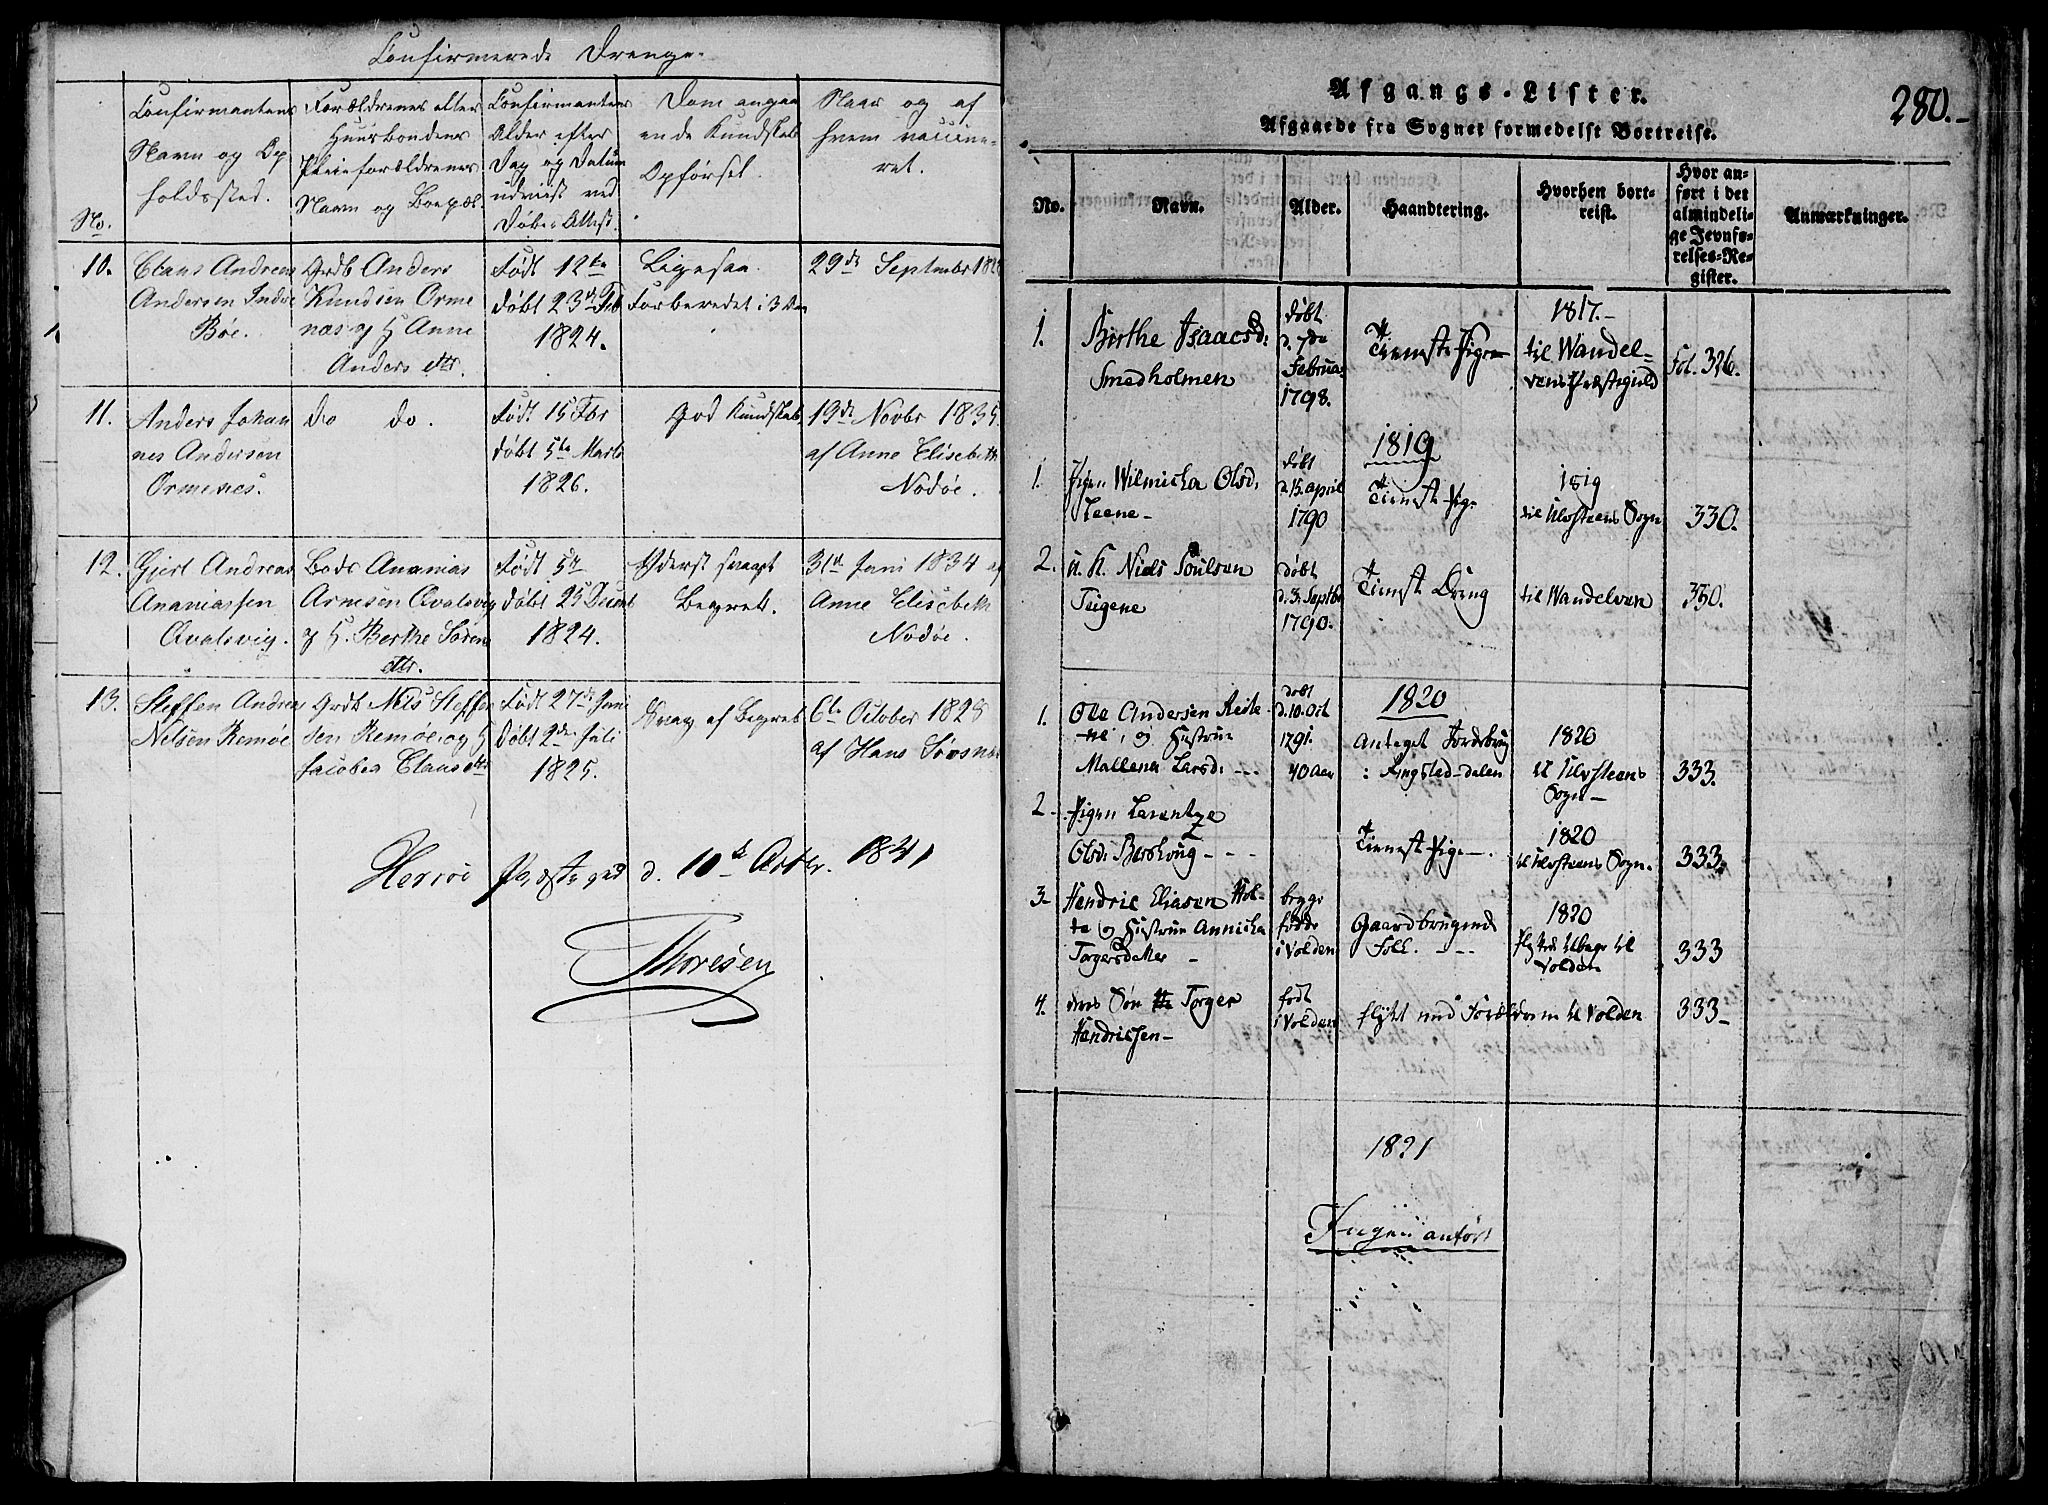 Confirmerede Drenge.
No.
Confirmantens
Navn og Op
holdssted.
Forældrenes eller
Huusbondens
Pleieforældrenes
Navn og Boepæl.
Confirmantens
Alder efter
Dag og Datum
udviist ved
Døbe-Attest.
Dom angaa
ende Kundskab
Opførsel.
Naar og af
hvem vaccine-
ret.
10.
Claus Andreas
Andersen Indre
Bøe.
Grdb Anders
Knudsen Orme
næs og H Anne
Anders dttr.
Født 12te
døbt 23de Feb
1824.
Ligesaa.
Forberedet i 3
29de Septembr 182
11.
Anders Johan
nes Andersen
Ormenes.
do do.
Født 15 Fbr
døbt 5te Marts
1826.
God Kundskab
19de Novbr 1835
af Anne Elisebeth
Nodøe.
12.
Gjert Andreas
Ananiassen
Qvalsvig.
Ananias
Arnesen Qvalsvig
og H. Berthe Søren
dttr.
Født 5te
døbt 25 Decemb
1824.
Yderst svagt
Begreb.
31te Juni 1834 af
Anne Elisebeth
Nodøe.
13.
Steffen Andreas
Nelsen Remøe
Grdb Nils Steffen
sen Remøe og H
Jacobea Clausdttr
Født 27de Juni
Døbt 2de Juli
1825.
Svag af Begreb
6te October 1828
af Hans
Herrøe Præstegrd d. 10de Octbr. 1841
Thoresen
280.
Afgangs-Lister.
Afgaaede fra Sognet formedelst Bortreise.
No.
Navn.
Alder.
Haandtering.
Hvorhen bort-
reist.
Hvor an-
ført i det
almindeli-
ge Jevnfø-
relses-Re-
gister.
Anmærkninger.
1.
Birthe Isaacsd:
Smedholmen
døbt
d. 7de
Februar
1798.
Tieneste Pige
1817.-
til Wandel-
vens Præstegield
Fol. 326.
1819
1.
Pigen Wilmicha Olsd:
døbt
d. 15. april
1790
Tienest Pige
1819
til Ulvsteens Sogn
330.
2.
u. K. Niels Poulsen
Teigene
døbt
d. 3. Septbr
1790.
Tienst Dreng
til Wandelven
330.
1820
1.
Ole Andersen
og Hustrue
Mallena Larsd:
døbt
d. 10. Oct
1791.
40 Aar
Antaget Jordebrug
i Ringsted-dalen
1820
til Ulvsteens
Sogn
333.
2.
Pigen Lerentze
Olsd:
Tienest Pige
1820
til Ulvsteens Sogn.
333.
3.
Hendric Eliasen
og Hustrue Annicha
Torgersdatter
begge
fødde
i Volden
Gaardbrugend
Folk.
1820
til
Volden
333
4.
deres Søn Torger
Hendricsen
født
i Volden
flyttet med Forældrene til Volden
333
1821
Ingen anført